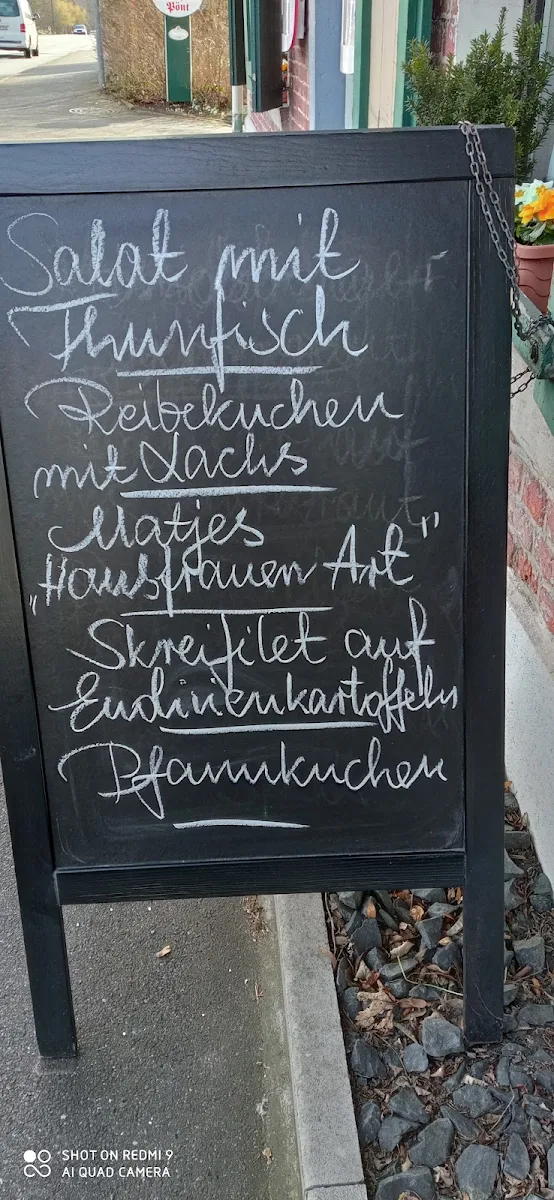 Pönt
Salat mit
Thunfisch
Reibekuchen
mit Lachs
Matjes
„Hausfrauen Art"
Skreifilet auf
Endivienkartoffeln
Pfannkuchen
SHOT ON REDMI 9
AI QUAD CAMERA